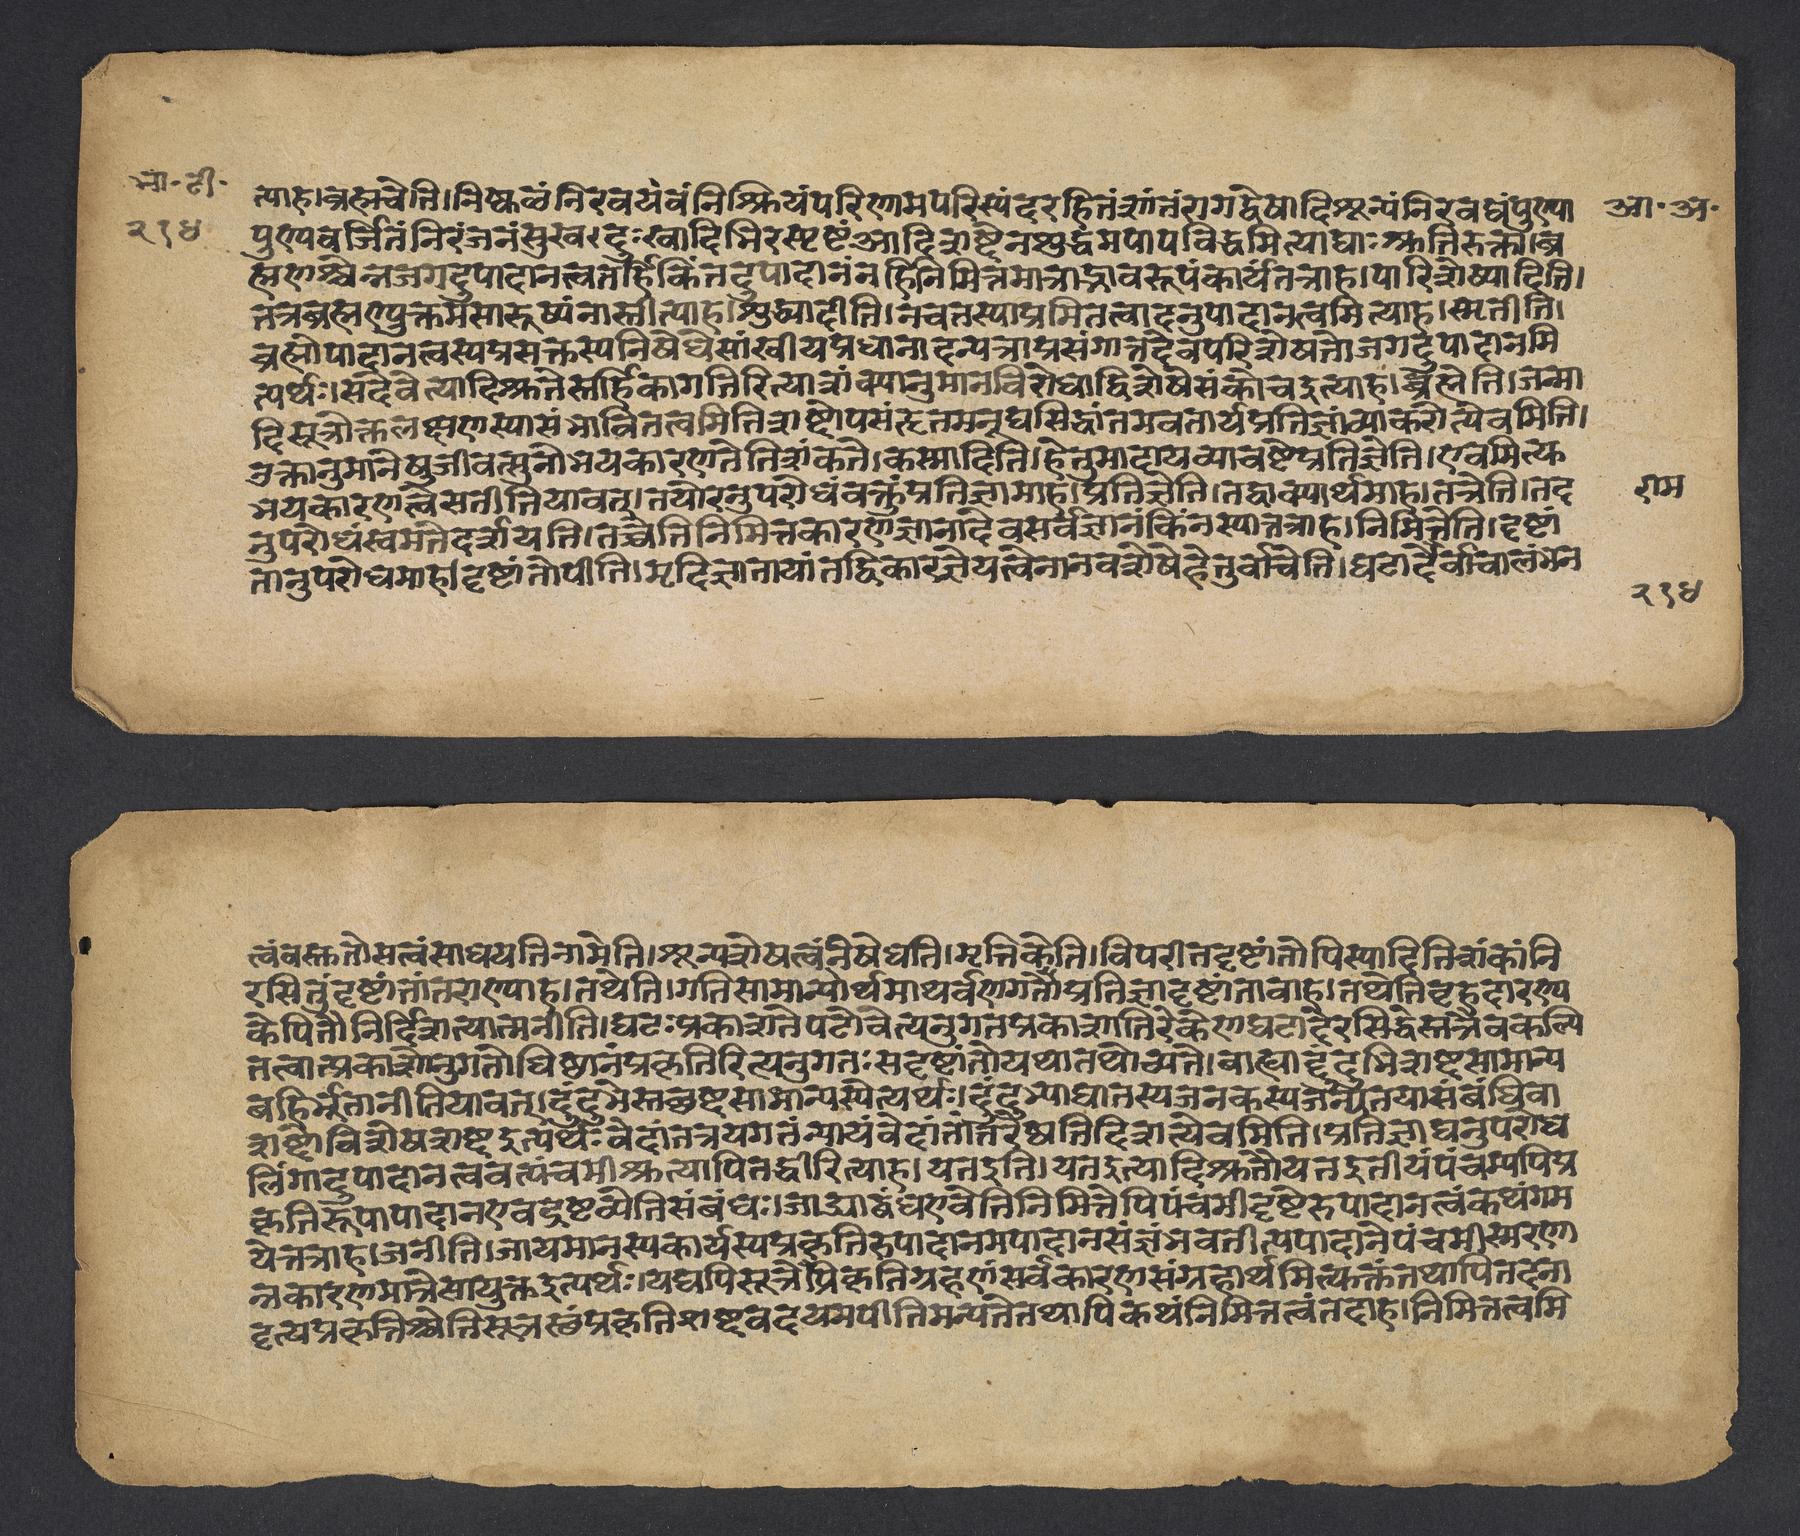 भा॰ टी॰
२१४
आ॰ अ॰
त्याह।ब्रह्मचेति।निष्कलंनिरवयवंनिष्क्रियंपरिणामपरिस्पंदरहितंशांतंरागद्वेषादिशून्यंनिरवद्यंपुण्या
पुण्यवर्जितंनिरंजनंसुखदुःखादिभिरस्पृष्टंआदिशब्देनशुद्धमपापविद्धमित्याद्याःश्रुतिरुक्ता।ब्र
ह्मणश्चेन्नजगदुपादानत्वंतर्हिकिंतदुपादानंनहिनिमित्तमात्राद्भावरूपंकार्यंतत्राह।पारिशेष्यादिति।
तत्रब्रह्मण्युक्तमसारूप्यंनास्तीत्याह।अशुद्ध्यादीति।नचतस्याप्रमितत्वादनुपादानत्वमित्याह।स्मृतीति।
ब्रह्मोपादानत्वस्यप्रसक्तस्यनिषेधेसांख्यीयप्रधानादन्यत्राप्रसंगात्तदेवपरिशेषतोजगदुपादानमि
त्यर्थः।सदेवेत्यादिश्रुतेस्तर्हिकागतिरित्याशंक्यानुमानविरोधाद्विशेषेसंकोचइत्याह।ब्रह्मेति।जन्मा
दिसूत्रोक्तलक्षणस्यासंभावितत्वमितिशब्दोपसंहृतमनूद्यसिद्धांतमवतार्यप्रतिज्ञांव्याकरोत्येवमिति।
उक्तानुमानेषुजीवत्सुनोभयकारणतेतिशंकते।कस्मादिति।हेतुमादायव्याचष्टेप्रतिज्ञेति।एवमित्यु
भयकारणत्वेसतीतियावत्।तयोरनुपरोधंवक्तुंप्रतिज्ञामाह।प्रतिज्ञेति।तद्वाक्यार्थमाह।तत्रेति।तद
राम
नुपरोधंस्वमतेदर्शयति।तच्चेतिनिमित्तकारणज्ञानादेवसर्वज्ञानंकिंनस्यात्तत्राह।निमित्तेति।दृष्टां
तानुपरोधमाह।दृष्टांतोपीति।मृदिज्ञातायांतद्विकारज्ञेयत्वेनानवशेषेहेतुर्वाचेति।घटादेर्वाचालंभन
२१४
त्वंवस्तुतोसत्वंसाधयतिनामेति।शून्यशेषत्वंनिषेधति।मृत्तिकेति।विपरीतदृष्टांतोपिस्यादितिशंकांनि
रसितुंदृष्टांतांतराण्याह।तथेति।गतिसामान्यार्थमाथर्वणगतौप्रतिज्ञादृष्टांतावाह।तथेतिबृहदारण्य
केपितौनिर्दिशत्यात्मनीति।घटःप्रकाशतेपटोवेत्यनुगतप्रकाशातिरेकेणघटादेरसिद्धेस्तत्रैवकल्पि
तत्वात्प्रकाशोनुगतोधिष्ठानंप्रकृतिरित्यनुगतःसदृष्टांतोयथातथोच्यते।बाह्यादुंदुभिशब्दसामान्य
बहिर्भूतानीतियावत्।दुंदुभेस्तच्छब्दसामान्यस्येत्यर्थः।दुंदुभ्याघातस्यजनकस्यजन्यतयासंबंधिवा
शब्दोविशेषशब्दइत्यर्थःवेदांतत्रयगतंन्यायंवेदांतांतरेष्वतिदिशत्येवमिति।प्रतिज्ञाद्यनुपरोध
लिंगादुपादानत्ववत्पंचमीश्रुत्यापितद्धीरित्याह।यतइति।यतइत्यादिश्रुतौयतइतीयंपंचम्यपिप्र
कृतिरूपापादानएवद्रष्टव्येतिसंबंधः।जाड्याद्बंधएवेतिनिमित्तेपिपंचमीदृष्टेरुपादानत्वंकथंगम
येत्तत्राह।जनीति।जायमानस्यकार्यस्यप्रकृतिरुपादानमपादानसंज्ञंभवतीत्यपादानेपंचमीस्मरणा
न्नकारणमात्रेसायुक्तइत्यर्थः।यद्यपिसूत्रेप्रकृतिग्रहणंसर्वकारणसंग्रहार्थमित्युक्तंतथापितदना
दृत्यप्रकृतिश्चेतिसूत्रस्थंप्रकृतिशब्दवदयमपीतिमन्यतेतथापिकथंनिमित्तत्वंतदाह।निमित्तत्वमि